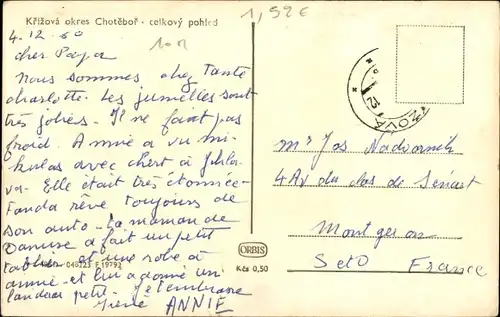 Křížová okres Chotěboř - celkový pohled
1,52 €
4.12.60
cher Papa
Nous sommes chez Tante
charlotte. Les jumelles sont
très jolies. Il ne fait pas
froid. Annie a vu mi-
kulas avec chert à Jihla-
va. Elle était très étonnée.
Fanda rêve toujours de
son auto. La maman de
Danuse a fait un petit
tablier et une robe à
annie et lui a donné un
landau petit. Je t'embrasse
Irène ANNIE
040223 F 19792
ORBIS
Kčs 0,50
Mr Jos Nadvornik
4 Av du clos de Sénart
Montgeron
S et O
France